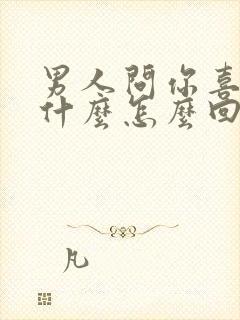 男人問你喜
什麼怎麼回
凡